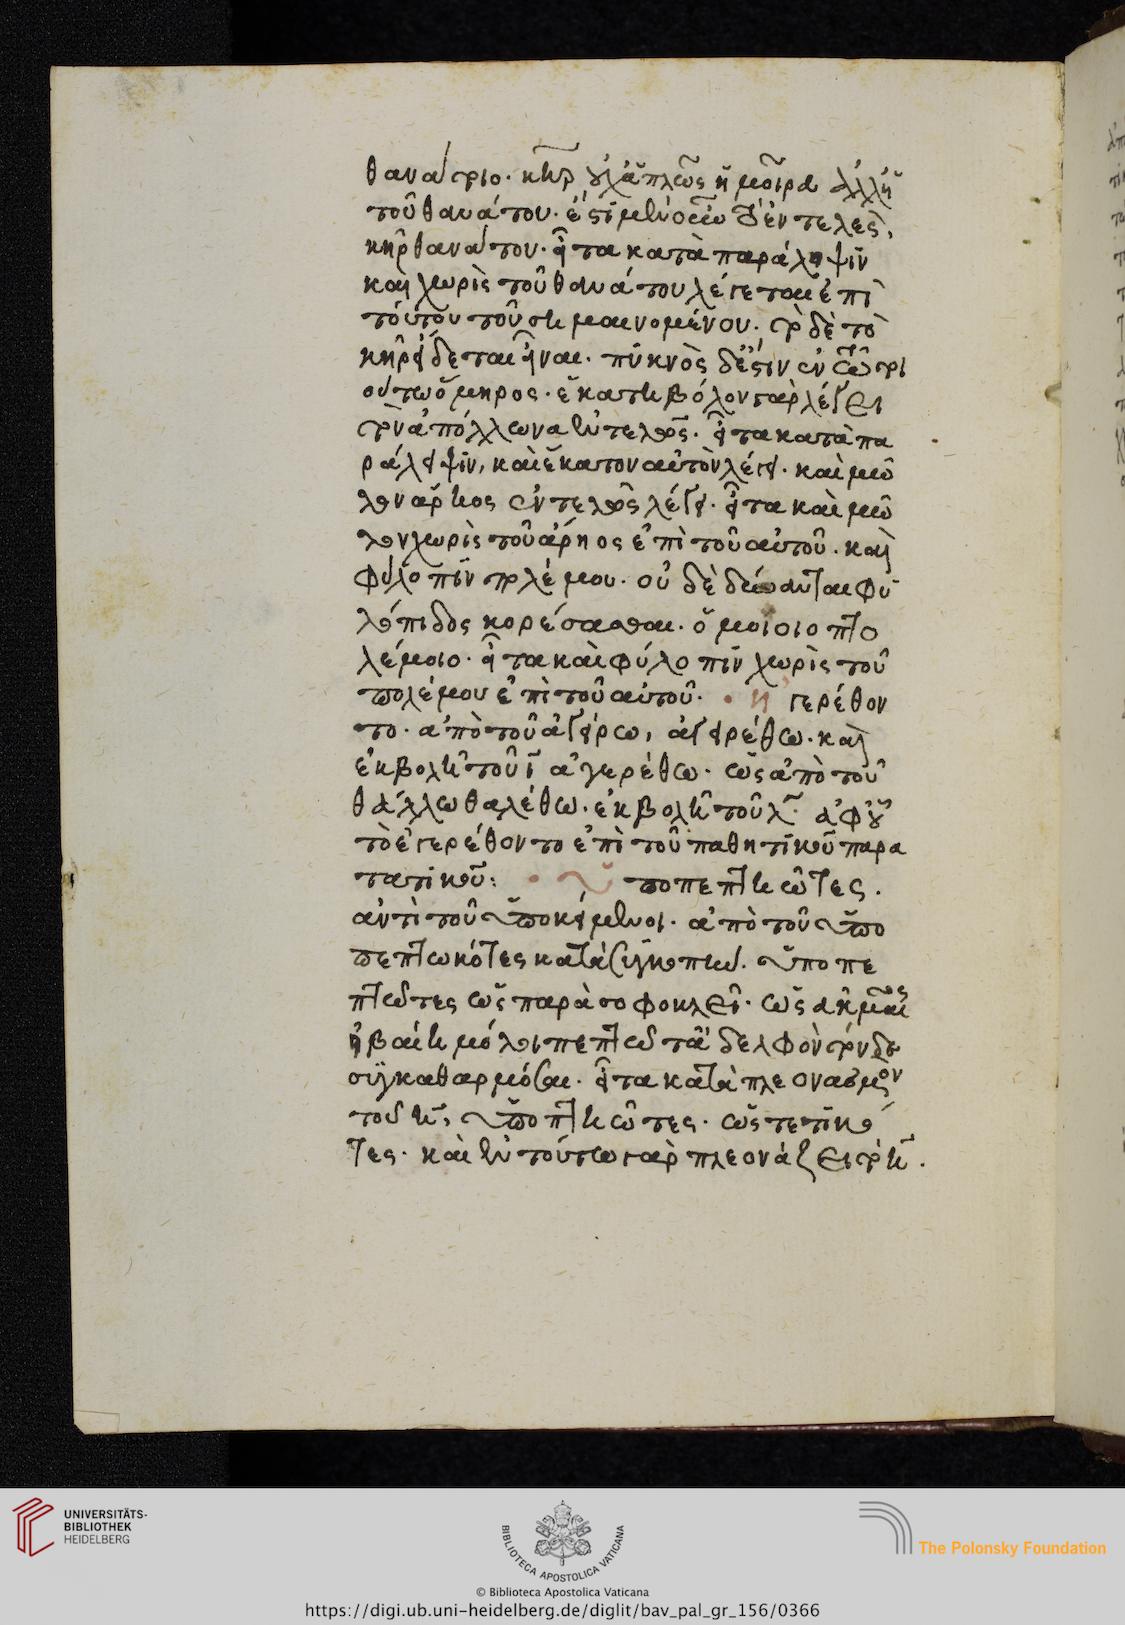 θανάτοιο· κὴρ οὐχ ἁπλῶς ἡ μοῖρα ἀλλ' ἡ
τοῦ θανάτου· ἔστι μὲν οὖν τὸ ἐντελὲς,
κὴρ θανάτου· εἶτα κατὰ παράληψιν
καὶ χωρὶς τοῦ θανάτου λέγεται ἐπὶ
τούτου τοῦ σημαινομένου· τὸ δὲ τὸ
κὴρ εἴδεται εἶναι· πυκνὸς δέ ἐστιν ἐν
οὕτω ὅμηρος· ἑκατηβόλον γὰρ λέγει
τὸν ἀπόλλωνα ἐντελῶς· εἶτα κατὰ πα
ράλειψιν, καὶ ἕκατον αὐτὸν λέγει· καὶ μῶ
λον ἄρηος ἐντελῶς λέγει· εἶτα καὶ μῶ
λον χωρὶς τοῦ ἄρηος ἐπὶ τοῦ αὐτοῦ· καὶ
φύλοπιν πολέμου· οὐ δὲ δύναται φυ
λόπιδος κορέσασθαι· ὁμοιοιο πτο
λέμοιο· εἶτα καὶ φύλοπιν χωρὶς τοῦ
πολέμου ἐπὶ τοῦ αὐτοῦ· ἠγερέθον
το· ἀπὸ τοῦ ἀγείρω, ἀγειρέθω· καὶ
ἐκβολῆ τοῦ ῑ ἀγερέθω· ὡς ἀπὸ τοῦ
θάλλω θαλέθω· ἐκβολῆ τοῦ λ· ἀφ' οὗ
τὸ ἐγερέθοντο ἐπὶ τοῦ παθητικοῦ παρα
τατικοῦ: ὑποπεπτηῶτες·
ἀντὶ τοῦ ὑποκείμενοι· ἀπὸ τοῦ ὑπο
πεπτωκότες κατὰ συγκοπὴν· ὑποπε
πτῶτες ὡς παρὰ σοφοκλεῖ· ὡς
ἡβαίη μόλοι πεπτῶτ' ἀδελφὸν τόνδε
συγκαθαρμόσαι· εἶτα κατὰ πλεονασμὸν
τοῦ η, ὑποπτηῶτες· ὡς τετιηό
τες· καὶ ἐν τούτω γὰρ πλεονάζει τὸ η̄.
UNIVERSITÄTS-
BIBLIOTHEK
HEIDELBERG
BIBLIOTECA APOSTOLICA VATICANA
The Polonsky Foundation
© Biblioteca Apostolica Vaticana
https://digi.ub.uni-heidelberg.de/diglit/bav_pal_gr_156/0366